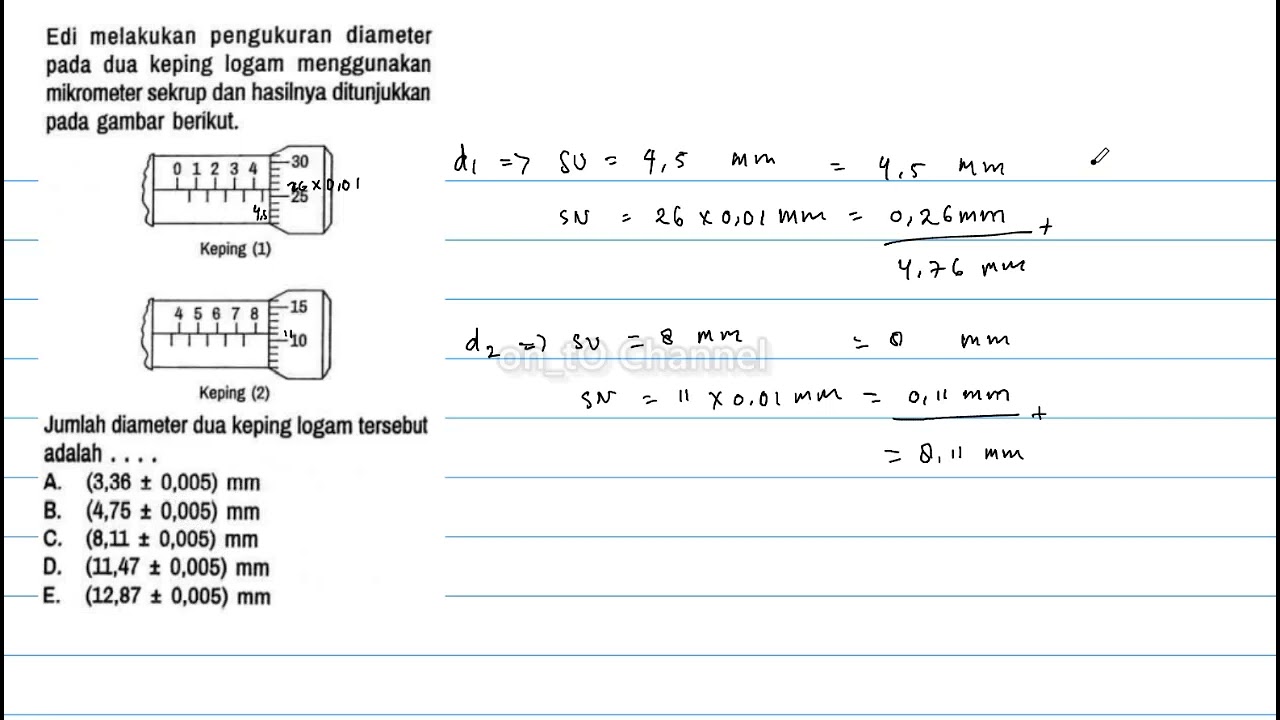 Edi melakukan pengukuran diameter
pada dua keping logam menggunakan
mikrometer sekrup dan hasilnya ditunjukkan
pada gambar berikut.
0 1 2 3 4
30
26 x 0,01
25
4,5
Keping (1)
4 5 6 7 8
15
11
10
Keping (2)
Jumlah diameter dua keping logam tersebut
adalah . . . .
A. (3,36 ± 0,005) mm
B. (4,75 ± 0,005) mm
C. (8,11 ± 0,005) mm
D. (11,47 ± 0,005) mm
E. (12,87 ± 0,005) mm
d1 => SU = 4,5 mm = 4,5 mm
SN = 26 x 0,01 mm = 0,26 mm +
4,76 mm
d2 => SU = 8 mm = 8 mm
SN = 11 x 0,01 mm = 0,11 mm +
= 8,11 mm
on_tO Channel